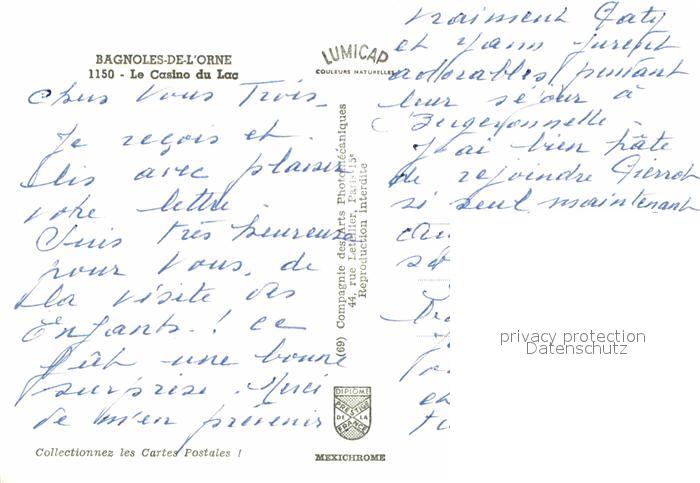 BAGNOLES-DE-L'ORNE
1150 - Le Casino du Lac
LUMICAP
COULEURS NATURELLES
Chers Vous Trois_
Je reçois et
lis avec plaisir
votre lettre.
Suis très heureuse
pour vous, de
la visite des
Enfants.! ce
fût une bonne
surprise. Merci
de m'en prévenir
Collectionnez les Cartes Postales !
(69) Compagnie des Arts Photomécaniques
44, rue Letellier, Paris-15e
Reproduction interdite
DIPLOME
PRESTIGE
DE LA
FRANCE
MEXICHROME
vraiment Caty
et Yann furent
adorables pendant
leur séjour à
J'ai bien hâte
de rejoindre Pierrot
si seul maintenant
privacy protection
Datenschutz